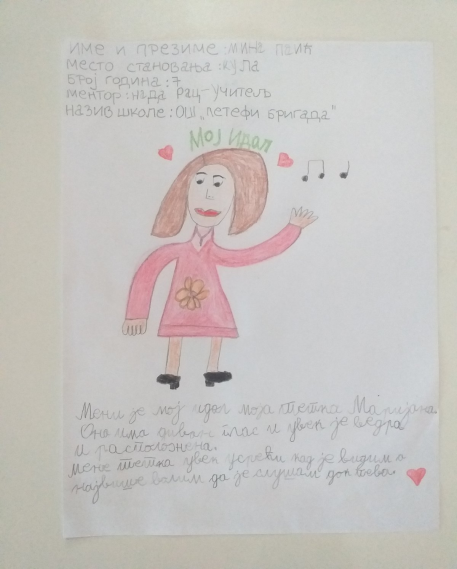 име и презиме: мина
место становања: кула
број година: 7
ментор: нада рац-учитељ
назив школе: ОШ „петефи бригада"
Мој идол
Мени је мој идол моја тетка Маријана.
Она има диван глас и увек је ведра
и расположена.
мене тетка увек усрећи кад је видим а
највише волим да је слушам док пева.